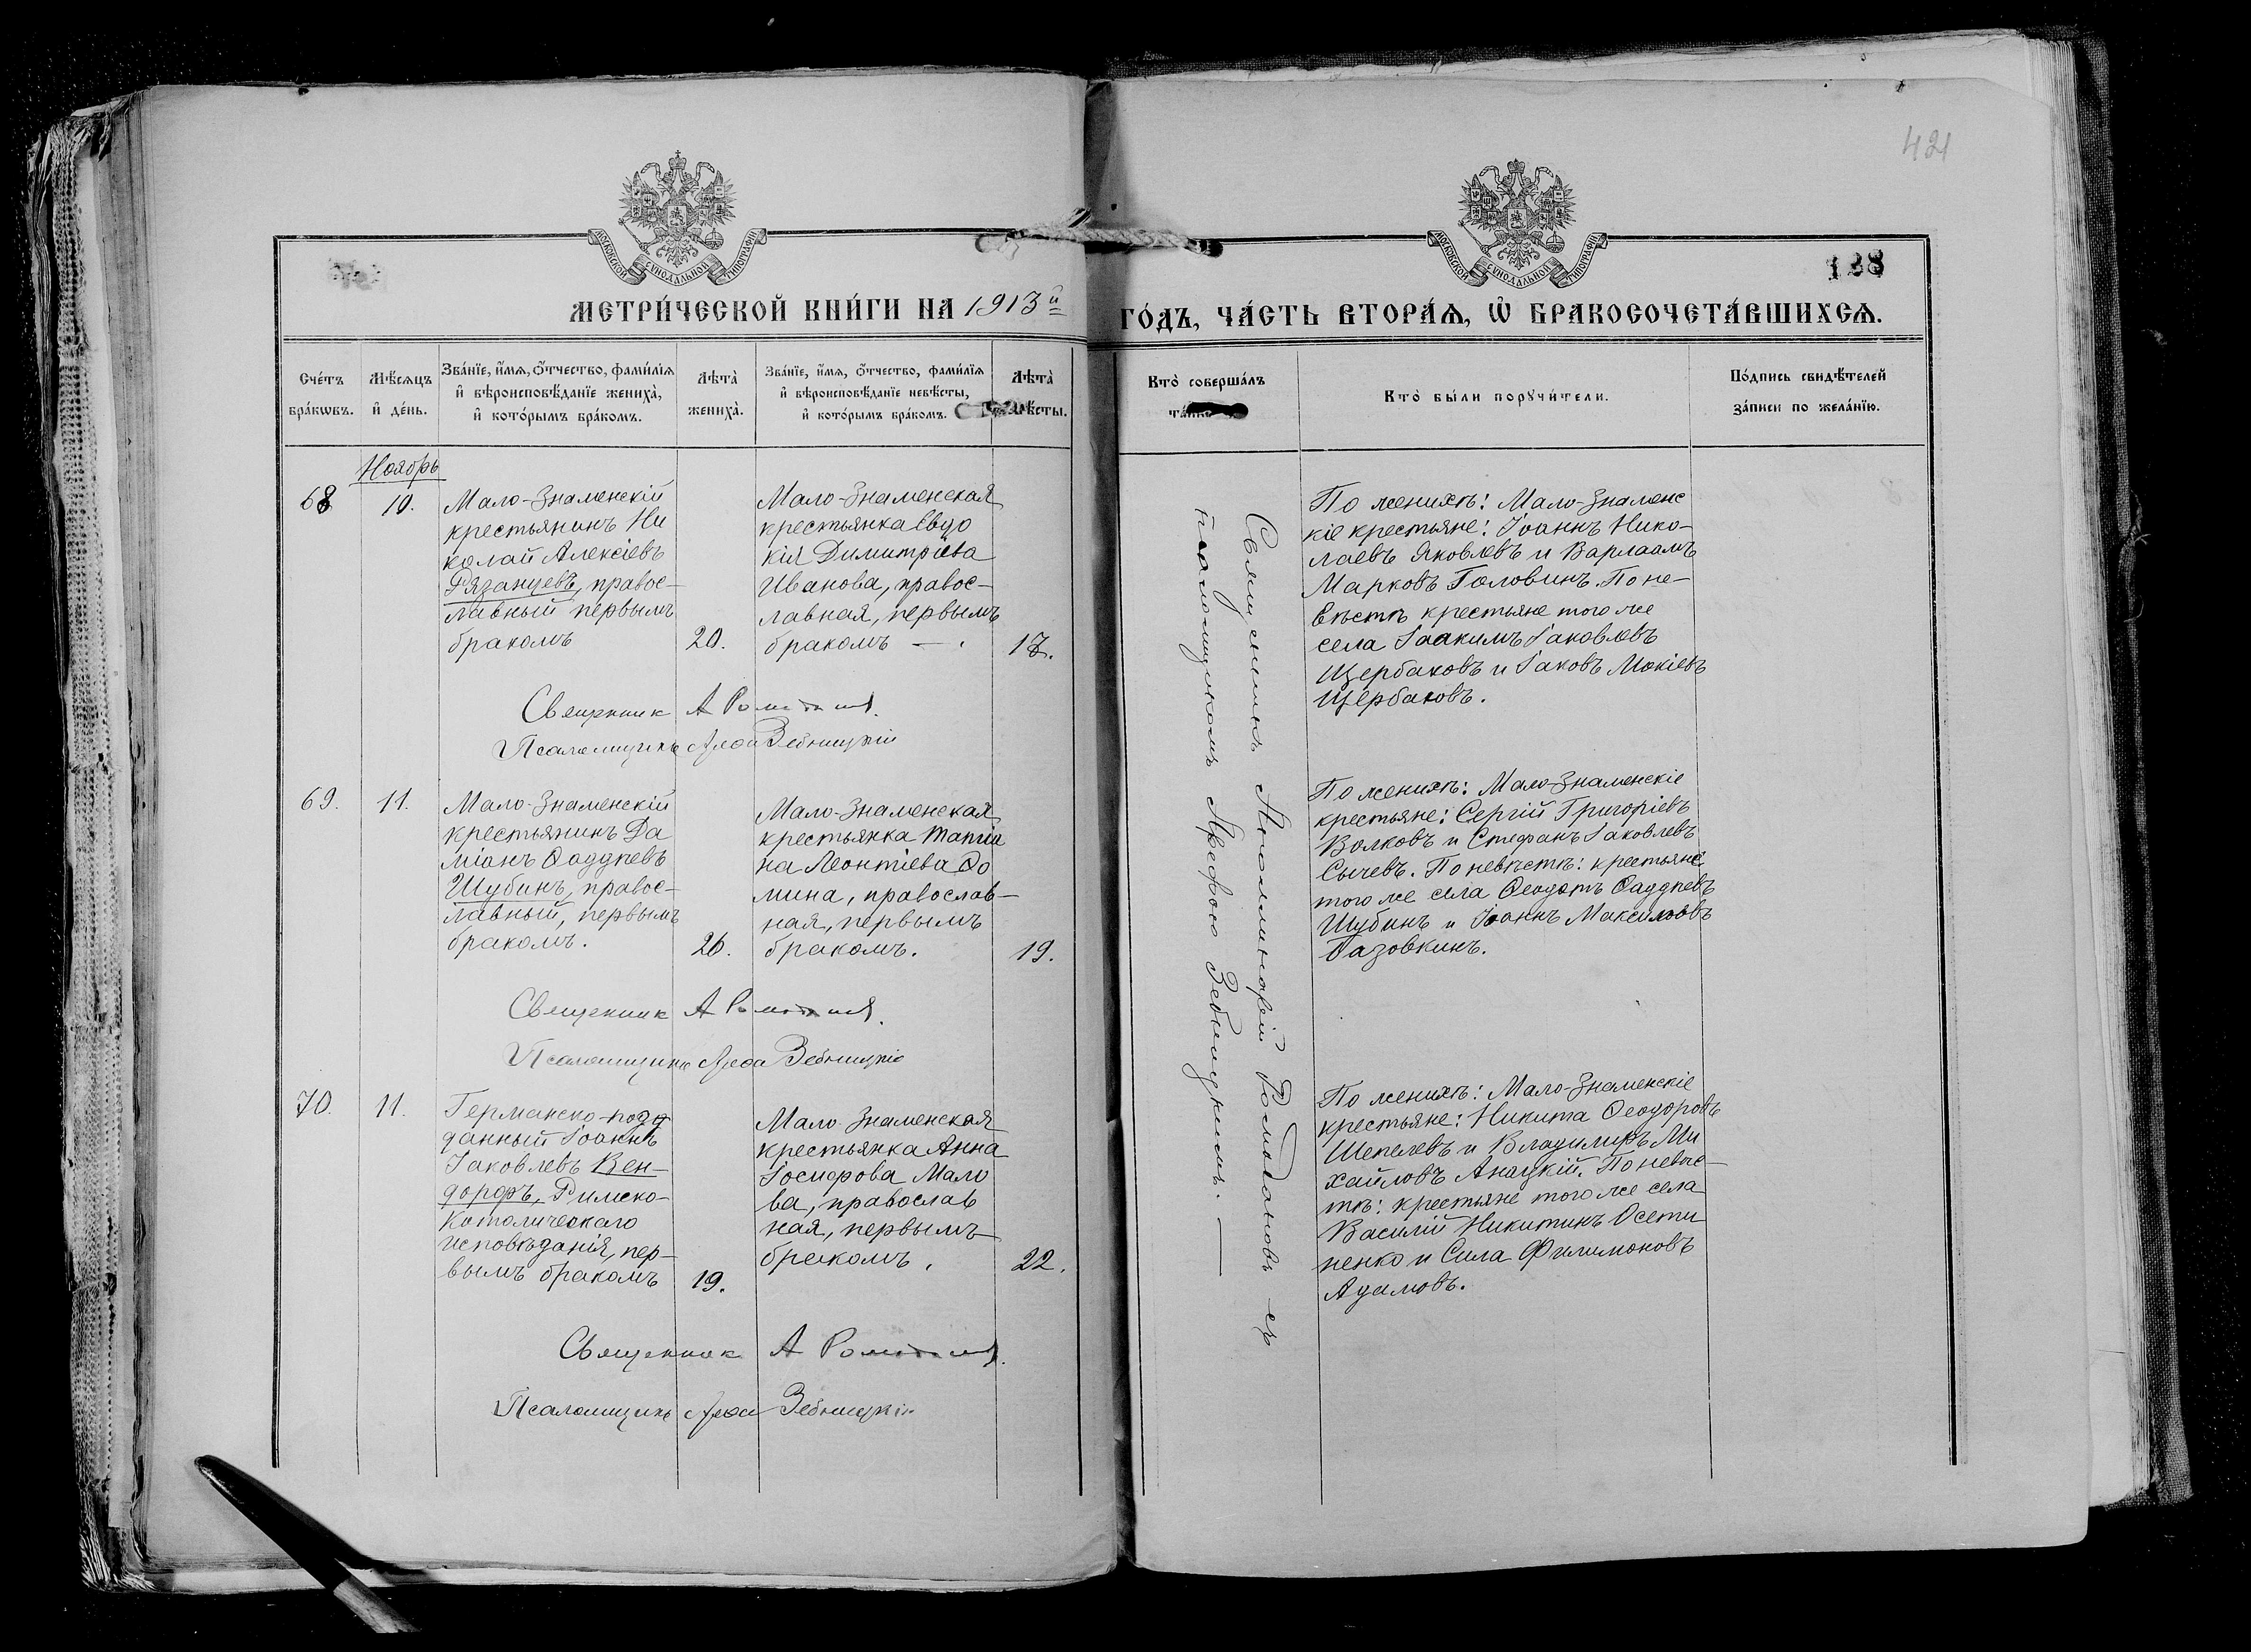 421
МОСКОВСКОЙ СѴНОДАЛЬНОЙ ТИПОГРАФІИ
МОСКОВСКОЙ СѴНОДАЛЬНОЙ ТИПОГРАФІИ
138
МЕТРИ́ЧЕСКОЙ КНИ́ГИ НА 1913й
ГО́ДЪ, ЧА́СТЬ ВТОРА́Ѧ, Ѡ҆ БРАКОСОЧЕТА́ВШИХСѦ.
Сче́тъ
бра́кѡвъ.
Мѣ́сѧцъ
и҆ де́нь.
Зва́нїе, и҆́мѧ, ѻ҆́тчество, фами́лїѧ
и҆ вѣроисповѣ́данїе жениха̀,
и҆ кото́рымъ бра́комъ.
Лѣта̀
жениха̀.
Зва́нїе, и҆́мѧ, ѻ҆́тчество, фами́лїѧ
и҆ вѣроисповѣ́данїе невѣ́сты,
и҆ кото́рымъ бра́комъ.
Лѣта̀
Кто̀ соверша́лъ
Кто̀ бы́ли порꙋчи́тели.
По́дпись свидѣ́телей
за́писи по жела́нїю.
Ноябрь
68
10.
Мало-Знаменскій
крестьянинъ Ни
колай Алексіевъ
Рязанцевъ, правос-
лавный первымъ
бракомъ
20.
Мало-Знаменская
крестьянка Евдо
кія Димитріева
Иванова, правос-
лавная, первымъ
бракомъ —.
По женихѣ: Мало-Знаменс
кіе крестьяне: Іоаннъ Нико-
лаевъ Яковлевъ и Варлаамъ
Марковъ Головинъ. По не-
вѣстѣ крестьяне того же
села Іоакимъ Іаковлевъ
Щербаковъ и Іаковъ Мокіевъ
Щербаковъ.
Священник А
Псаломщикъ Арефа Зебницкій
69.
11.
Мало-Знаменскій
крестьянинъ Да
міанъ Ѳаддѣевъ
Шубинъ, правос-
лавный, первымъ
бракомъ.
26.
Мало-Знаменская
крестьянка Татіа
на Леонтіева Ѳо
мина, православ-
ная, первымъ
бракомъ.
19.
По женихѣ: Мало-Знаменскіе
крестьяне: Сергій Григоріевъ
Волковъ и Стефанъ Іаковлевъ
Сычевъ. По невѣстѣ: крестьяне
того же села Ѳеодотъ Ѳаддѣевъ
Шубинъ и Іоаннъ Максимовъ
Базовкинъ.
Священник А
Псаломщикъ Арефа Зебницкій
70.
11.
Германско-подд
данный Іоаннъ
Іаковлевъ Вен-
дорфъ, Римско-
Католическаго
исповѣданія, пер-
вымъ бракомъ
19.
Мало Знаменская
крестьянка Анна
Іосифова Мало
ва, православ
ная, первымъ
бракомъ.
22.
По женихѣ: Мало-Знаменскіе
крестьяне: Никита Ѳеодоровъ
Шепелевъ и Владимиръ Ми
хайловъ Анацкій. По невѣс-
тѣ: крестьяне того же села
Василій Никитинъ Осети
ненко и Сила Филимоновъ
Адамовъ.
Священник А
Псаломщикъ Арефа Зебницкій
Священникъ Аполлинарій Ромодановъ съ
псаломщикомъ Арефою Зебницкимъ. —